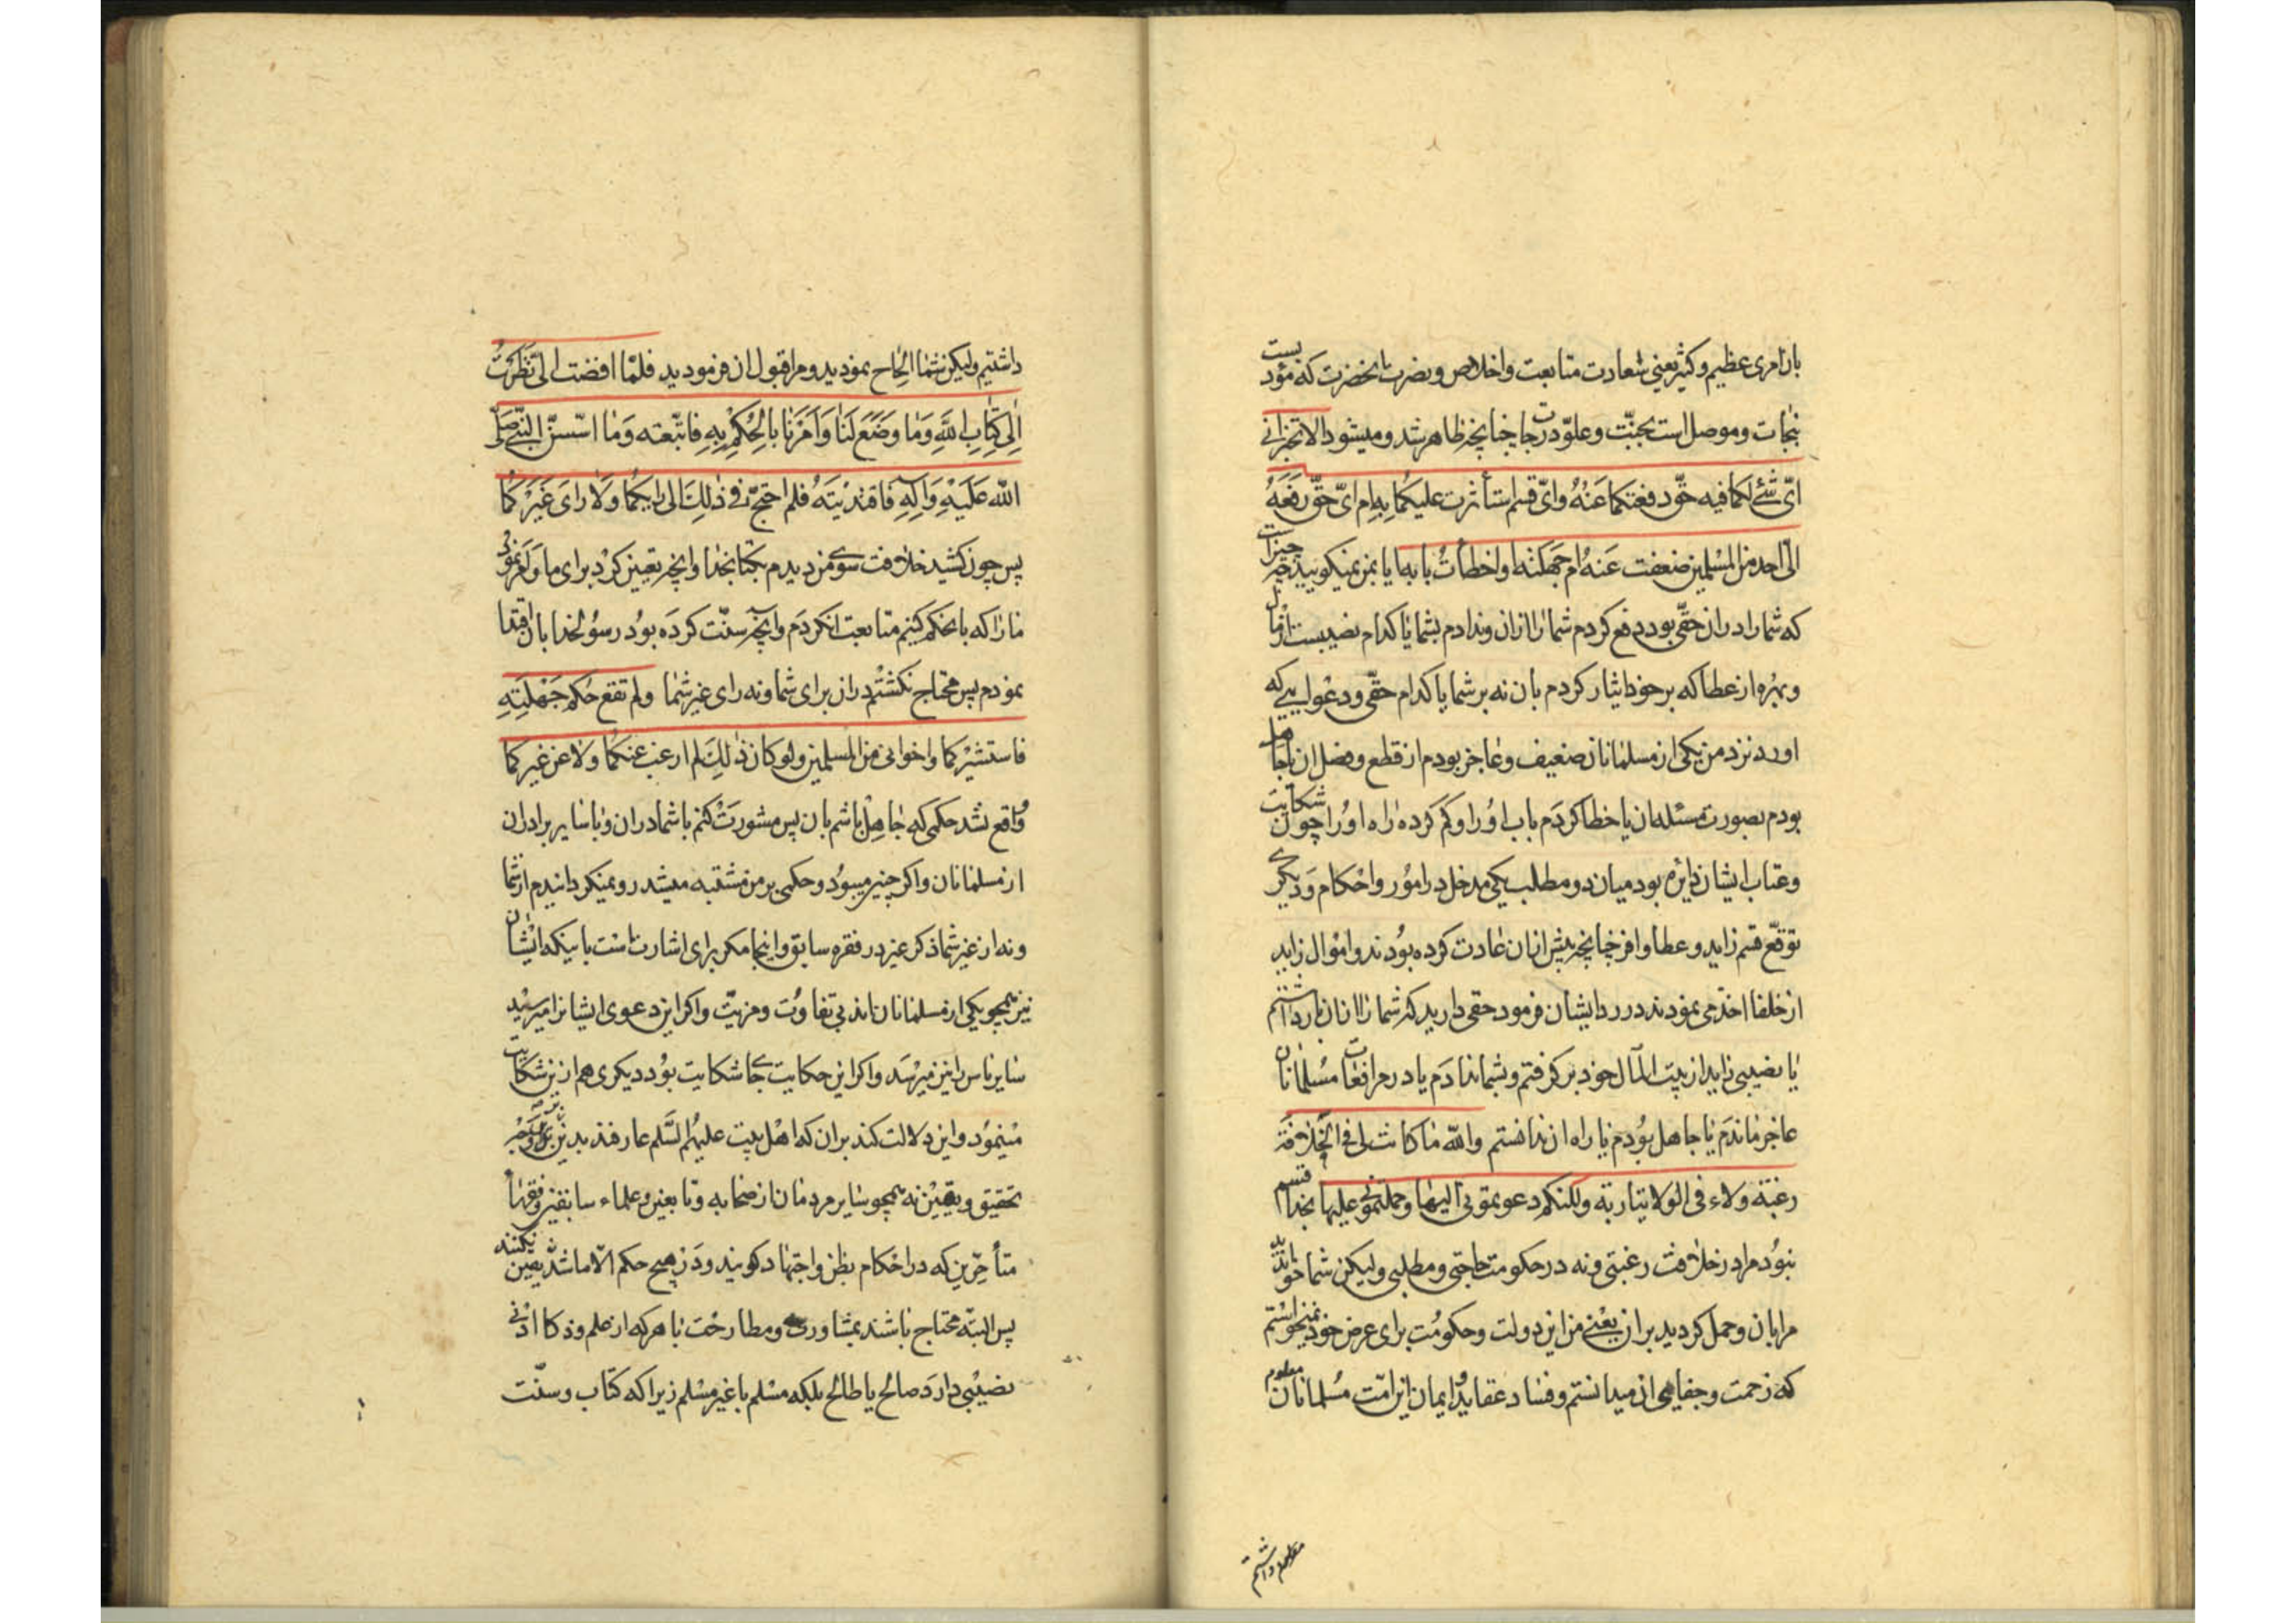 بان امری عظیم و کثیر یعنی سعادت متابعت و اخلاص و نصرت انحضرت که مؤدیست
بنجات و موصل است بجنّت و علوّ درجات چنانچه ظاهر شد و میشود الا تخبرانی
ایّ شئ لکما فیه حقّ دفعتکما عَنْهُ وایّ قسم استأثرت علیکما بِهِ ام ایّ حقّ رفَعَهُ
الیّ احد من المسلمین ضعفت عَنهُ ام جَهِلتُه ام اخطأتُ بابه ایا بمن نمیکویید خبر چیزیست
که شما را در ان حقّی بود دفع کردم شما را از ان و ندادم بشما یا کدام نصیبست از مال
و بهره از عطا که بر خود ایثار کردم بان نه بر شما یا کدام حقّی و دعوایی که
اورد نزد من یکی از مسلمانان ضعیف و عاجز بودم از قطع و فصل ان یا جاهل
بودم بصورت مسئله ان یا خطا کردَم باب اوُ را و کم کرده راه اوُ را چون شکایت
و عتاب ایشان دایره بود میان دو مطلب یکی مدخل در امُور و احکام وَ دیکری
توقّع قسم زاید و عطا وافر چنانچه پیش ازان عادت کرده بوُدند و اموال زاید
از خلفا اخذ می نمودند در رد ایشان فرمود حقی دارید که شما را از ان باز داشتم
یا نصیبی زاید از بیت المال خود برکرفتم و بشما ندادَم یا در مرافعات مسُلمانان
عاجز ماندَم یا جاهل بوُدم یا راه ان ندانستم والله ما کانت لی فی الخلافة
رغبة ولاء فی الولایة اربة ولکنکم دعوتمونی الیها و حملتمونی علیها بخدا قسم
نبوُد مرا در خلافت رغبتی و نه در حکومت حاجتی و مطلبی ولیکن شما خواندید
مرا بان و حمل کردید بر ان یعنی من این دولت و حکومُت برای عرض خود نمیخواستم
که زحمت و جفا می ان میدانستم و فساد عقاید و ایمان این امّت مسُلمانان معلوم
معلوم داشتم
داشتیم ولیکن شما الحِاح نمودید و مرا قبول ان فرمودید فلمّا افضت الیّ نظَرَتُ
اِلی کِتابِ اللهِ وَما وَضَعَ لَنا وَاَمَرَنا بالحُکمِ بِهِ فاتّبعته وَما استسنّ النبّی صَلّی
اللّه عَلَیْهِ وَآلِهِ فاقتدیْتَهُ فلم احتجّ فی ذٰلِکَ الی رایکما وَلا رای غَیَرَکما
پس چون کشید خلافت سوی من دیدم بکتابخدا وانچه تعیین کرد برای ما و امر نمود
ما را که بان حکم کنیم متابعت ان کردَم وانچه سنّت کردَه بوُد رسوُلخدا بان اقتدا
نمودم پس محتاج نکشتم در ان برای شما و نه رای غیر شما ولم تقع حکم جَهِلْتِهِ
فاستشیْرکما واخوانی من المسلمین ولو کان ذٰلِکَ لم ارغب عنکما ولا عن غیرکما
وُاقع نشد حکمی که جاهِل باشم بان پس مشورَت کنم با شما در ان و با سایر برادران
از مسلمانان و اکر چنیر میبوُد و حکمی بر من مشتبه میشد رو نمیکردانیدم از شما
و نه از غیر شما ذکر غیر در فقره سابق و اینجا مکر برای اشارت است باینکه ایشان
نیز همچو یکی از مسلمانان اند بی تفاوُت و مزیّت و اکر این دعوی ایشانرا میرسید
سایر ناس را نیز میرسَد و اکر این حکایت جای شکایت بوُد دیکری هم از ین شکایت
مینموُد و این دلالت کند بران که اهل بیت علیهُم السَّلم عارفند بدین
تحقیق و یقین نه همچو سایر مردمان از صحابه و تابعین و علماء سابقین و فقهاأ
متأخّرین که در احکام بظن و اجتهاد کویند و دَر هیچ حکم الّا ما شذّ یقین نکنند
پس البتّه محتاج باشند بمشاورت و مطارحَت با هر که از علم و ذکا ادنی
نصیْبی دارَد صالح یا طالح بلکه مسْلم با غیر مسْلم زیرا که کتاب و سنّت